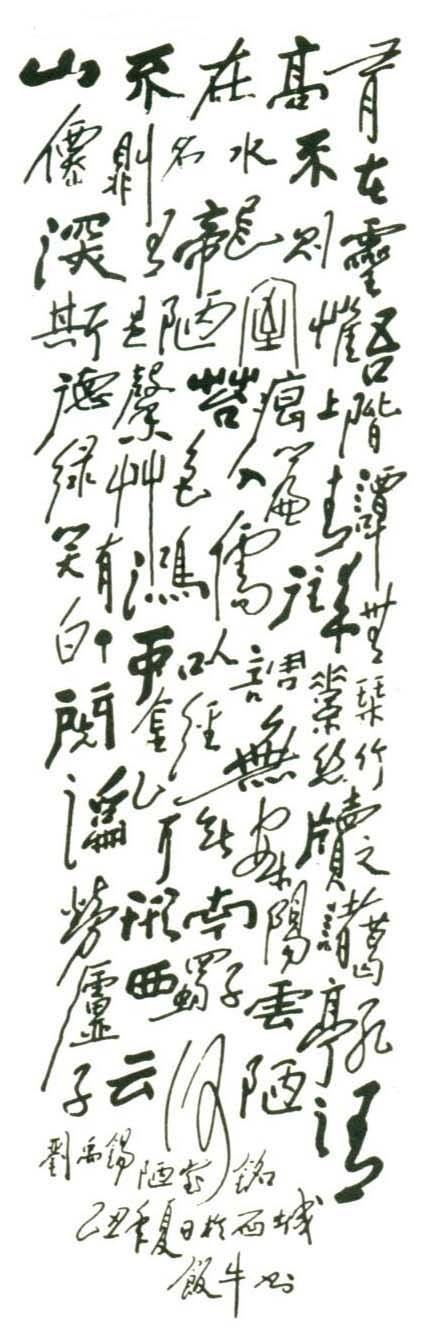 山不在高有
僊則名水不在
深有龍則靈
斯是陋室惟吾
德馨苔痕上階
綠艸色入簾青譚
笑有鴻儒往來無
白丁可以調素琴
閱金經無絲竹
亂耳無案牘之
勞形南陽諸葛
廬西蜀子雲亭孔
子云何陋之有
劉禹錫陋室銘
己丑年夏日於西城
飯牛